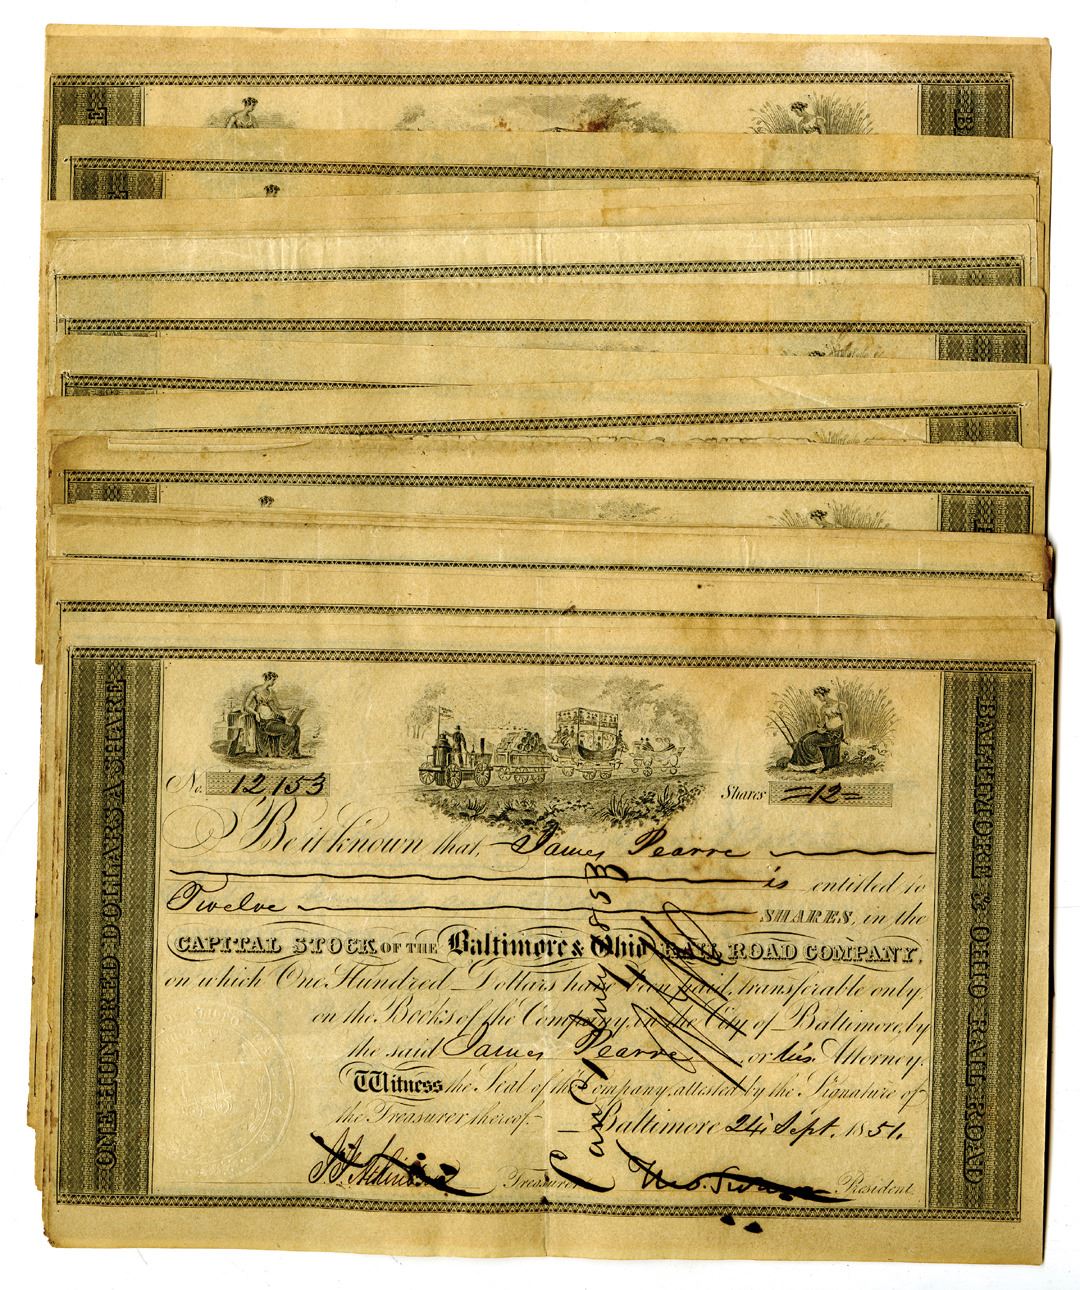 ONE HUNDRED DOLLARS A SHARE
BALTIMORE & OHIO RAIL ROAD
No. 12153
Shares =12=
Be it known that, James Pearre
is entitled to
Twelve SHARES, in the
CAPITAL STOCK OF THE Baltimore & Ohio RAIL ROAD COMPANY,
on which One Hundred Dollars have been paid, transferable only
on the Books of the Company, in the City of Baltimore, by
the said James Pearre, or his Attorney.
Witness the Seal of the Company, attested by the Signature of
the Treasurer thereof. Baltimore 24 Sept. 1851.
Treasurer
President